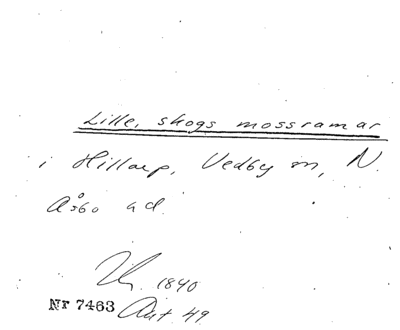 Lille, skogs mossramar
i Hillarp, Vedby sn, N.
Åsbo hd.
1840
Nr 7463 Akt 49